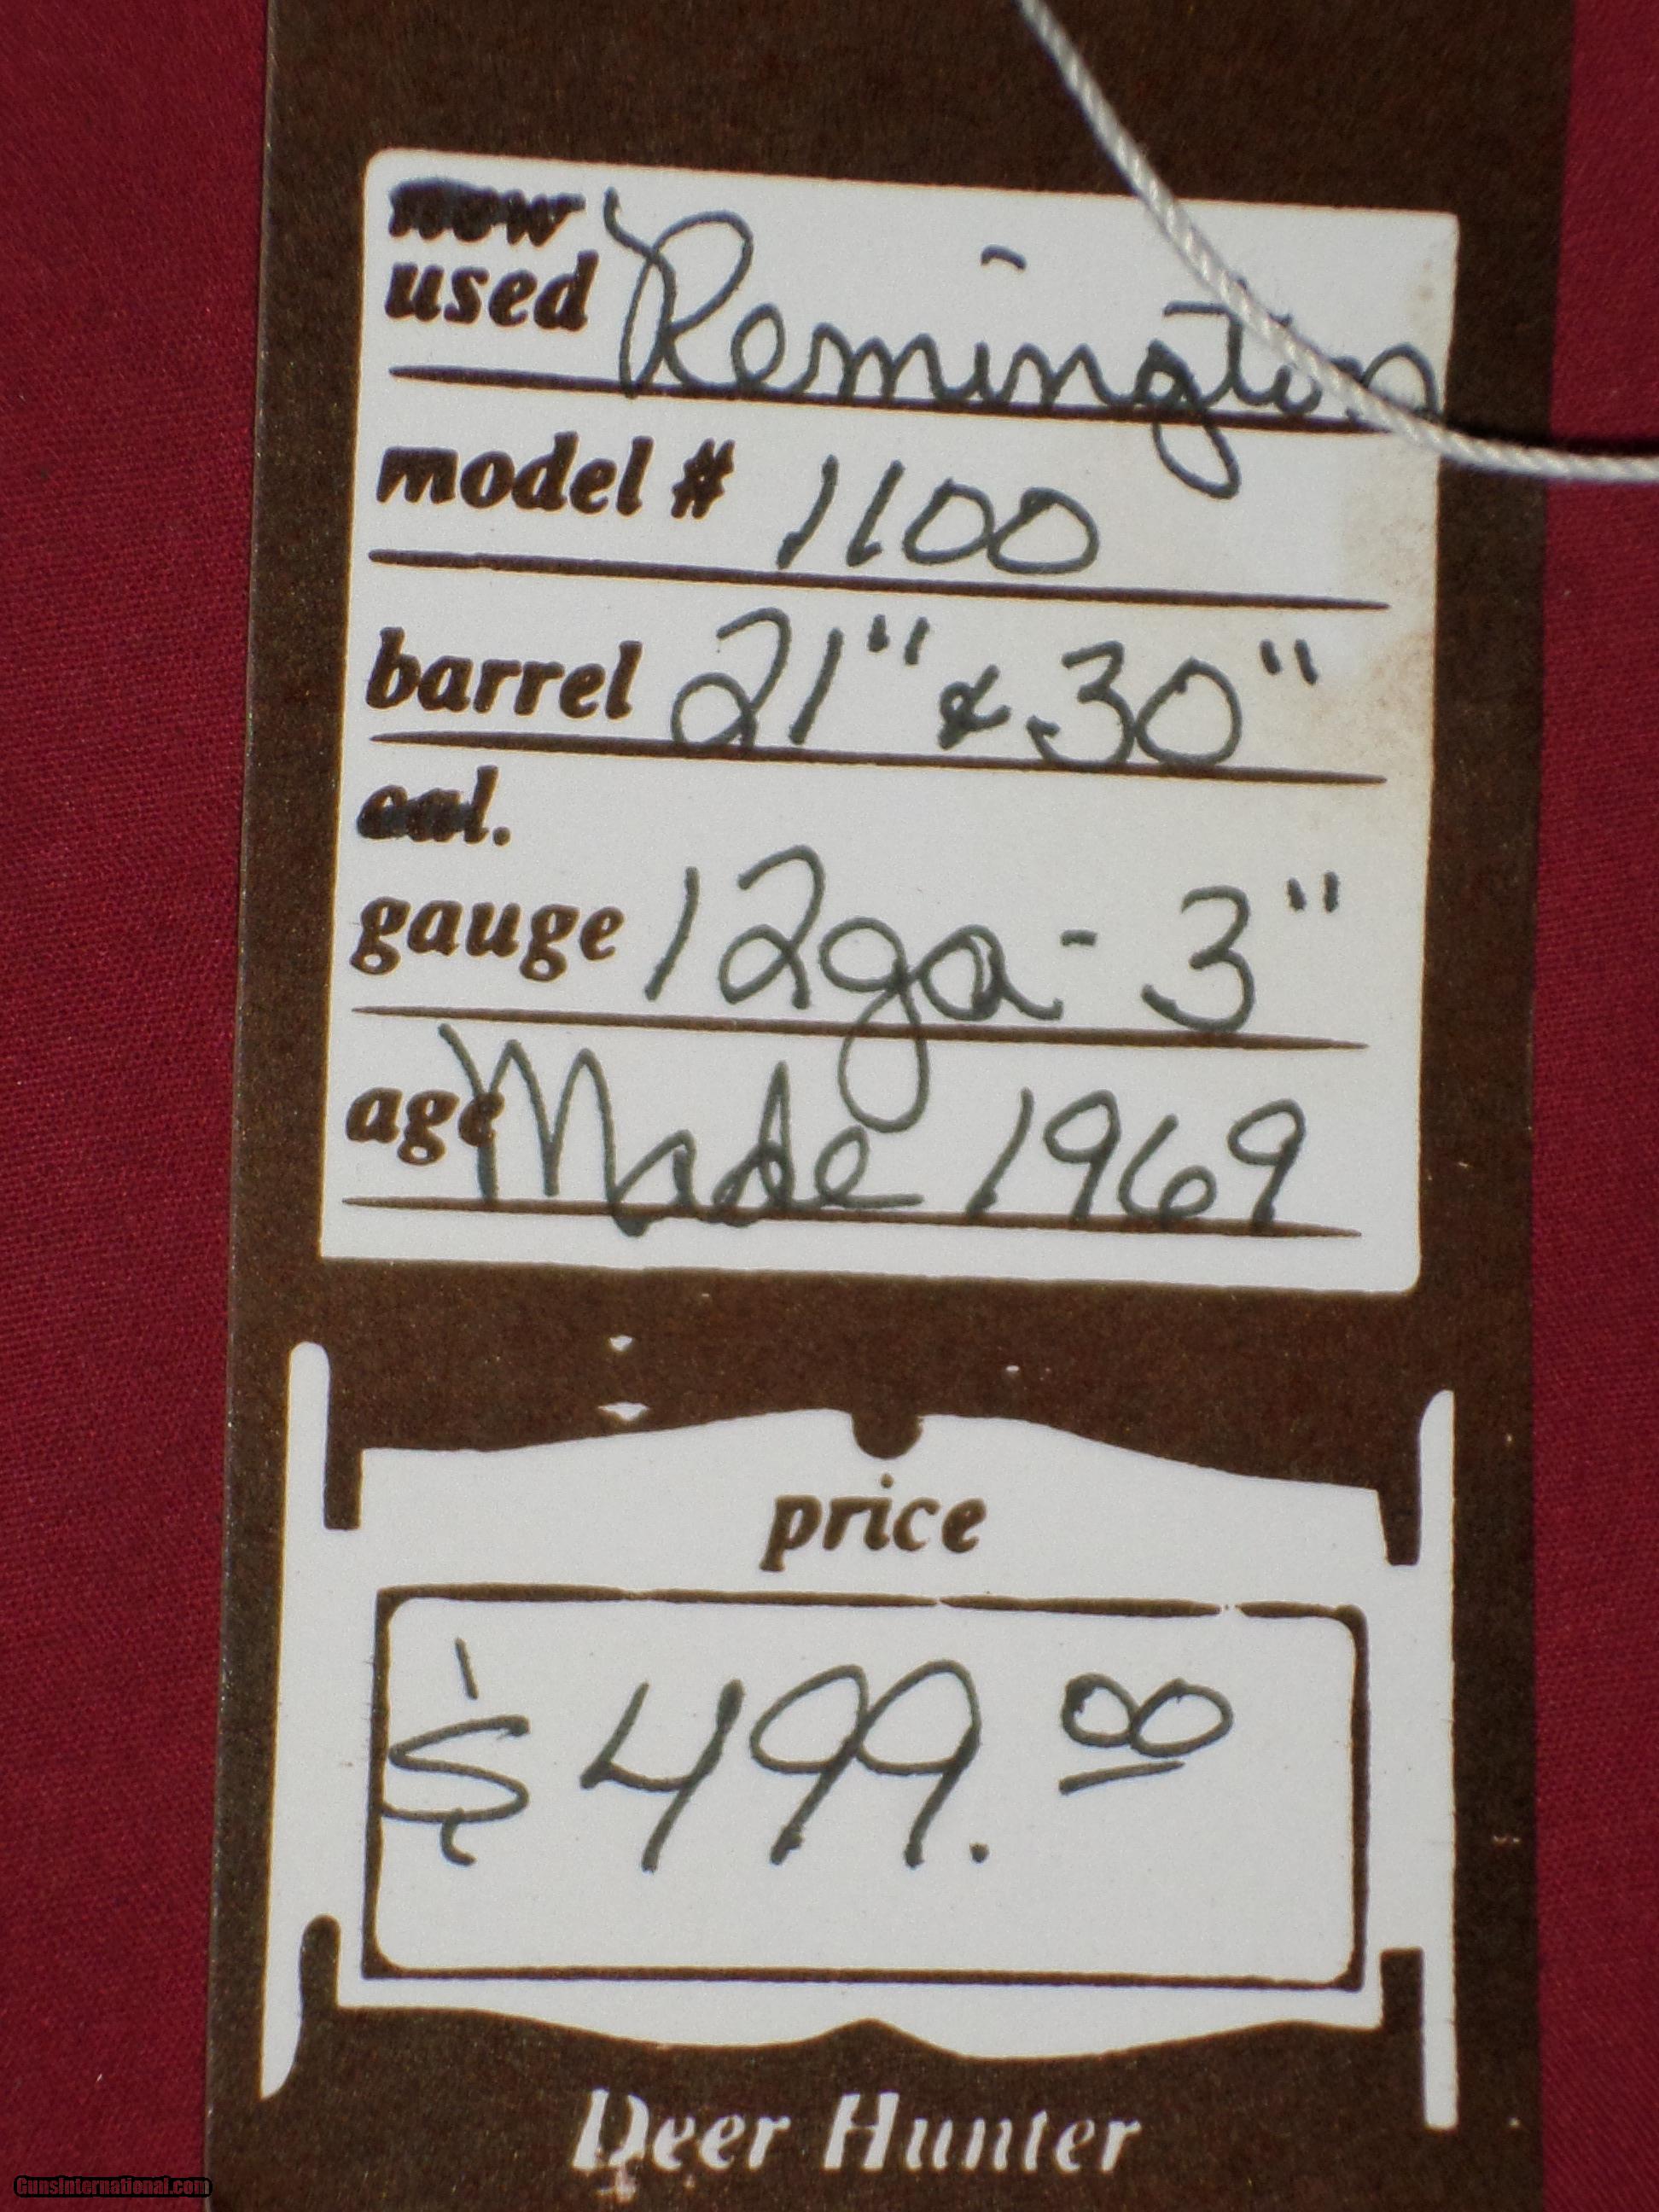 new
used Remington
model # 1100
barrel 21" & 30"
cal.
gauge 12ga - 3"
age Made 1969
price
$499.00
Deer Hunter
GunsInternational.com